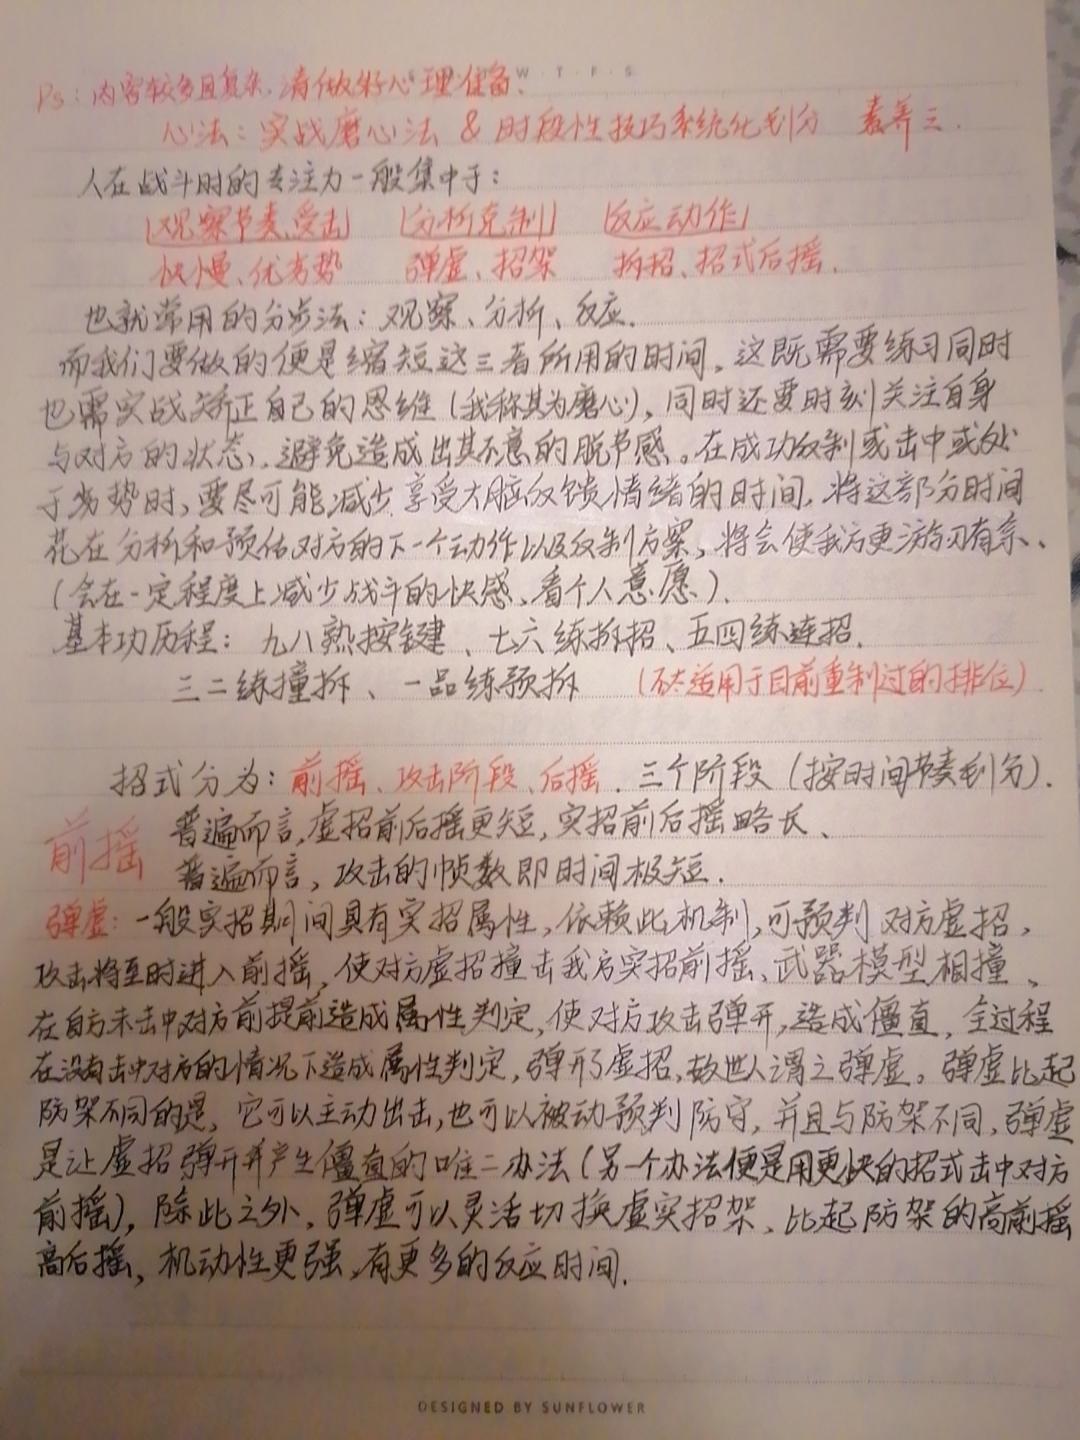 W·T·F·S
Ps：内容较多且复杂，请做好心理准备、
心法：实战磨心法 & 时段性技巧系统化划分 素养三.
人在战斗时的专注力一般集中于：
观察节奏、受击 分析克制 反应动作
快慢、优劣势 弹虚、招架 拆招、招式后摇.
也就常用的分步法：观察、分析、反应.
而我们要做的便是缩短这三者所用的时间，这既需要练习同时
也需实战矫正自己的思维（我称其为磨心），同时还要时刻关注自身
与对方的状态，避免造成出其不意的脱节感。在成功反制或击中或处
于劣势时，要尽可能减少享受大脑反馈情绪的时间，将这部分时间
花在分析和预估对方的下一个动作以及反制方案，将会使我方更游刃有余、
（会在一定程度上减少战斗的快感、看个人意愿）.
基本功历程：九八熟按键、七六练拆招、五四练连招.
三二练撞拆、一品练预拆 （不太适用于目前重制过的排位）
招式分为：前摇、攻击阶段、后摇．三个阶段（按时间节奏划分）.
前摇 普遍而言，虚招前后摇更短，实招前后摇略长、
普遍而言，攻击的帧数即时间极短．
弹虚：一般实招期间具有实招属性，依赖此机制，可预判对方虚招，
攻击将至时进入前摇，使对方虚招撞击我方实招前摇、武器模型相撞、
在自方未击中对方前提前造成属性判定，使对方攻击弹开，造成僵直，全过程
在没有击中对方的情况下造成属性判定，弹开了虚招，故世人谓之弹虚。弹虚比起
防架不同的是，它可以主动出击，也可以被动预判防守，并且与防架不同，弹虚
是让虚招弹开并产生僵直的唯二办法（另一个办法便是用更快的招式击中对方
前摇），除此之外，弹虚可以灵活切换虚实招架、比起防架的高前摇
高后摇，机动性更强，有更多的反应时间．
DESIGNED BY SUNFLOWER